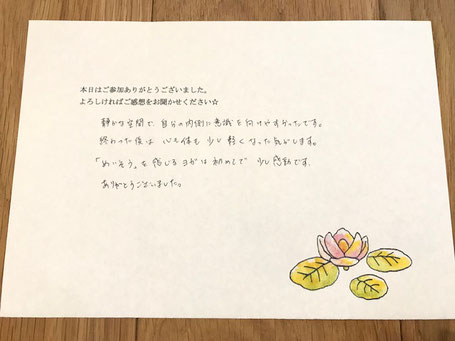 本日はご参加ありがとうございました。
よろしければご感想をお聞かせください☆
静かな空間で 自分の内側に意識を向けやすかったです。
終わった後は 心も体も 少し軽くなった気がします。
「めいそう」を感じるヨガは初めてで 少し感動です.
ありがとうございました。